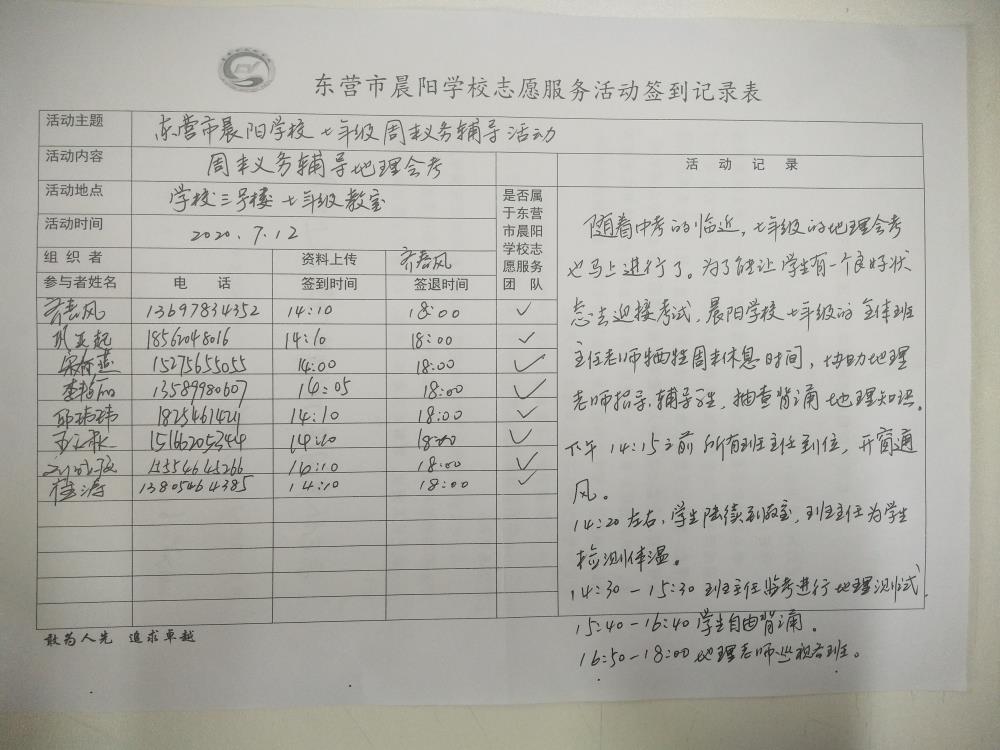 东营市晨阳学校志愿服务活动签到记录表
活动主题 东营市晨阳学校七年级周末义务辅导活动
活动内容 周末义务辅导地理会考
活动地点 学校三号楼七年级教室
活动时间 2020.7.12
组织者 资料上传 齐春风
参与者姓名 电话 签到时间 签退时间 是否属于东营市晨阳学校志愿服务团队
齐春风 13697834352 14:10 18:00 ✓
18562048016 14:10 18:00 ✓
15275655055 14:00 18:00 ✓
李艳丽 13589980607 14:05 18:00 ✓
邱玮玮 18254614211 14:10 18:00 ✓
15166205344 14:10 18:00 ✓
15554645266 14:10 18:00 ✓
桂涛 13805464385 14:10 18:00 ✓
活动记录
随着中考的临近,七年级的地理会考
也马上进行了。为了能让学生有一个良好状
态去迎接考试,晨阳学校七年级的全体班
主任老师牺牲周末休息时间,协助地理
老师指导、辅导学生,抽查背诵地理知识。
下午14:15之前所有班主任到位,开窗通
风。
14:20左右,学生陆续到教室,班主任为学生
检测体温。
14:30-15:30班主任监考进行地理测试.
15:40-16:40学生自由背诵。
16:50-18:00地理老师巡视各班。
敢为人先 追求卓越